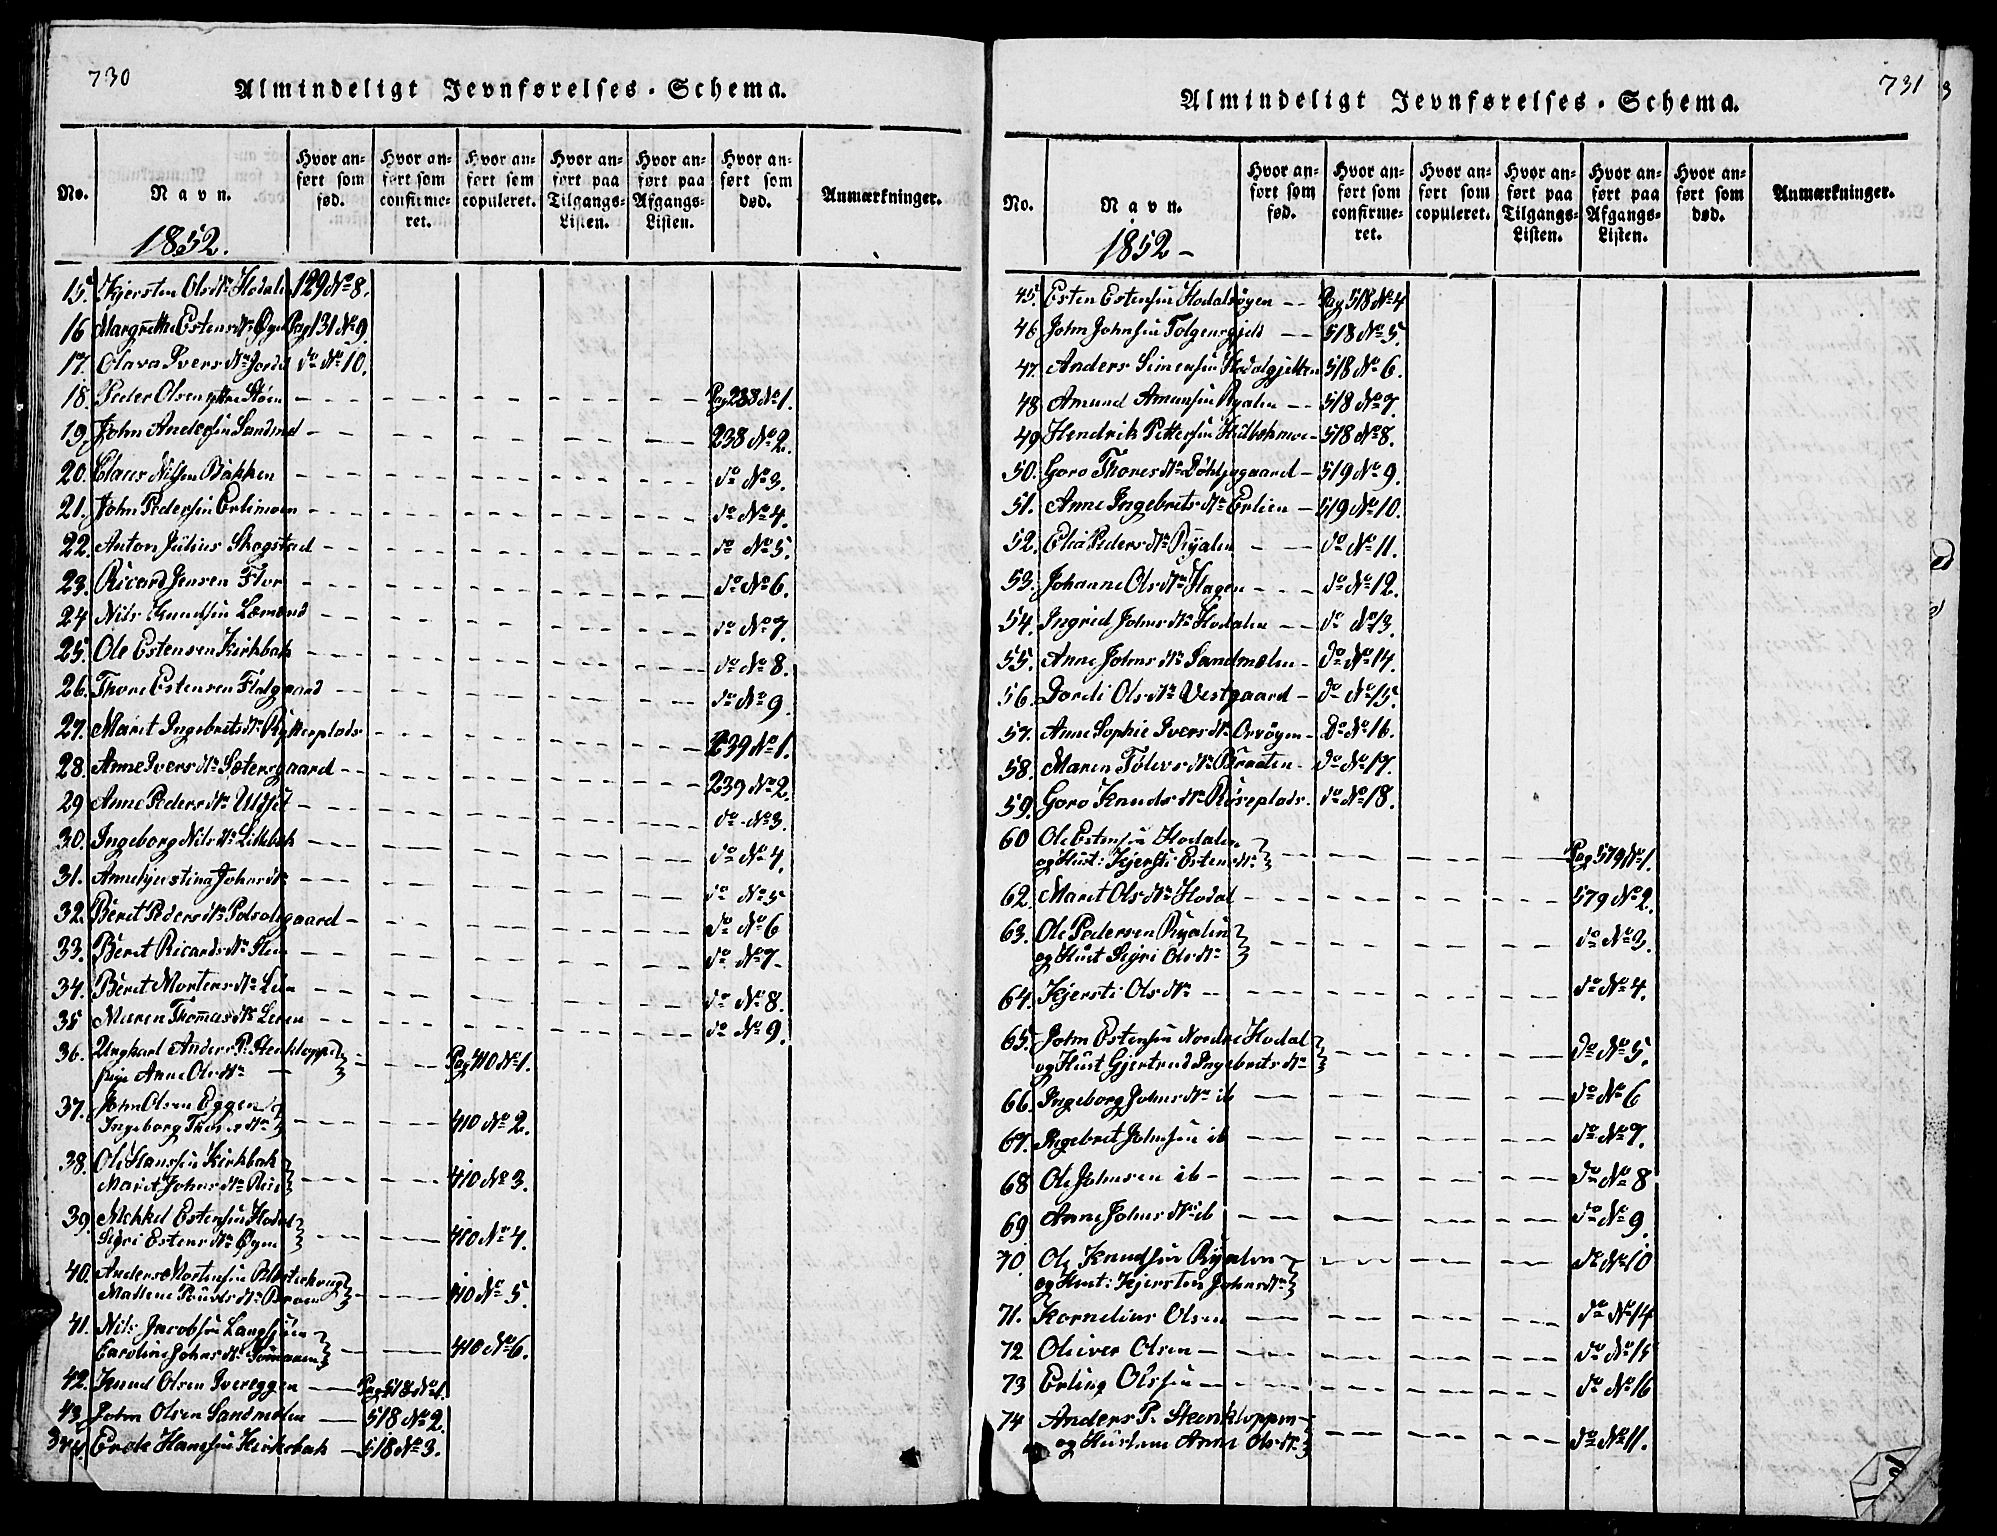 730
Almindeligt Jevnførelses-Schema.
No.
Navn.
Hvor anført som fød.
Hvor anført som confirmeret.
Hvor anført som copuleret.
Hvor anført paa Tilgangs-Listen.
Hvor anført paa Afgangs-Listen.
Hvor anført som død.
Anmærkninger.
1852.
15. Kjersten Olsdr Hodalen 129 No 8.
16 Margrethe Estensdr Øyen Pag 131 No 9.
17. Olava Iversdr Jordet do No 10.
18. Peder Olsen Støen Pag 238 No 1.
19. John Andersen Sandmel 238 No 2.
20. Claus Nilsen Bakken do No 3.
21. John Pedersen Erlimoen do No 4.
22. Anton Julius Skogstad do No 5.
23. Ricard Jensen Flor do No 6.
24 Nils Knudsen do No 7.
25. Ole Estensen Kirkbak do No 8.
26. Thore Estensen Flatgaard do No 9.
27. Marit Ingebritsdr 239 No 1.
28. Anne Iversdr Sætersgaard 239 No 2.
29 Anne Pedersdr Utsjst do No 3.
30. Ingeborg Nilsdr Lillebak do No 4.
31. Anne Kjerstina Johnsdr do No 5
32. Berit Pedersdr gaard do No 6
33. Berit Ricardsdr Flen do No 7
34. Berit Mortensdr Lien do No 8.
35 Maren Thomasdr Leren do No 9.
36. Ungkarl Anders P. Stenkloppen
Pige Anne Olsdr Pag 410 No 1.
37. John Olsen Eggen
Ingeborg Thoresdr 410 No 2.
38. Ole Hansen Kirkbak
Marit Johnsdr 410 No 3.
39. Mikkel Estensen Hodal
Sigri Estensdr Øyen 410 No 4.
40. Anders Mortensen
Mallene Poulsdr Broen 410 No 5.
41. Nils Jacobsen Langsjøen
Caroline Johnsdr 410 No 6.
42. Knud Olsen Ivereggen Pag 518 No 1.
43. John Olsen Sandmælen 518 No 2.
44. Erek Hansen Kirkebak 518 No 3.
731
Almindeligt Jevnførelses-Schema.
No.
Navn.
Hvor anført som fød.
Hvor anført som confirmeret.
Hvor anført som copuleret.
Hvor anført paa Tilgangs-Listen.
Hvor anført paa Afgangs-Listen.
Hvor anført som død.
Anmærkninger.
1852
45. Esten Estensen Hodalsøyen Pag 518 No 4
46. John Johnsen Tolgensgjelt 518 No 5.
47. Anders Simensen Hodalgjelten 518 No 6.
48. Amund Amundsen Ryalen 518 No 7.
49 Hendrik Pettersen 518 No 8.
50. Goro Thoresdr gaard 519 No 9.
51. Anne Ingebritsdr Erlien 519 No 10.
52. Eli Pedersdr Ryalen do No 11.
53. Johanne Olsdr Hagen do No 12.
54. Ingrid Johnsdr Hodalen do No 13.
55. Anne Johnsdr Sandmælen do No 14.
56. Dordi Olsdr Vestgaard do No 15.
57. Anne Sophie Iversdr Orvøyen Do No 16.
58. Maren Tølevsdr Braaten do No 17.
59. Goro Knudsdr Røseplads do No 18.
60 Ole Estensen Hodalen
og Hust: Kjersti Estensdr Pag 579 No 1.
62. Marit Olsdr Hodal 579 No 2.
63. Ole Pedersen Ryalen
og Hust Sigri Olsdr do No 3.
64. Kjersti Olsdr do No 4.
65. John Estensen Nordre Hodal
og Hust Gjertrud Ingebritsdr Do No 5.
66. Ingeborg Johnsdr ib do No 6
67. Ingebret Johnsen ib do No 7.
68 Ole Johnsen ib do No 8
69 Anne Johnsdr ib do No 9.
70 Ole Knudsen Ryalen
og Hust: Kjersten Johnsdr do No 10
71. Kornelius Olsen do No 14
72 Oliver Olsen do No 15
73 Erling Olssen do No 16
74 Anders P. Steenkloppen
og Hustrue Anne Olsdr do No 11.